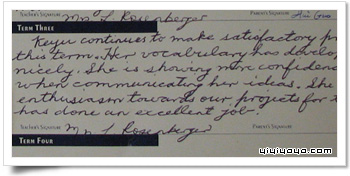 Mrs L Rosenberger
TEACHER'S SIGNATURE PARENT'S SIGNATURE
TERM THREE
Keyu continues to make satisfactory
this term. Her vocabulary has
nicely. She is showing more
when communicating her ideas. She
enthusiasm towards our projects for
has done an excellent job.
Mrs L Rosenberger
TEACHER'S SIGNATURE PARENT'S SIGNATURE
TERM FOUR
yiyiyoyo.com